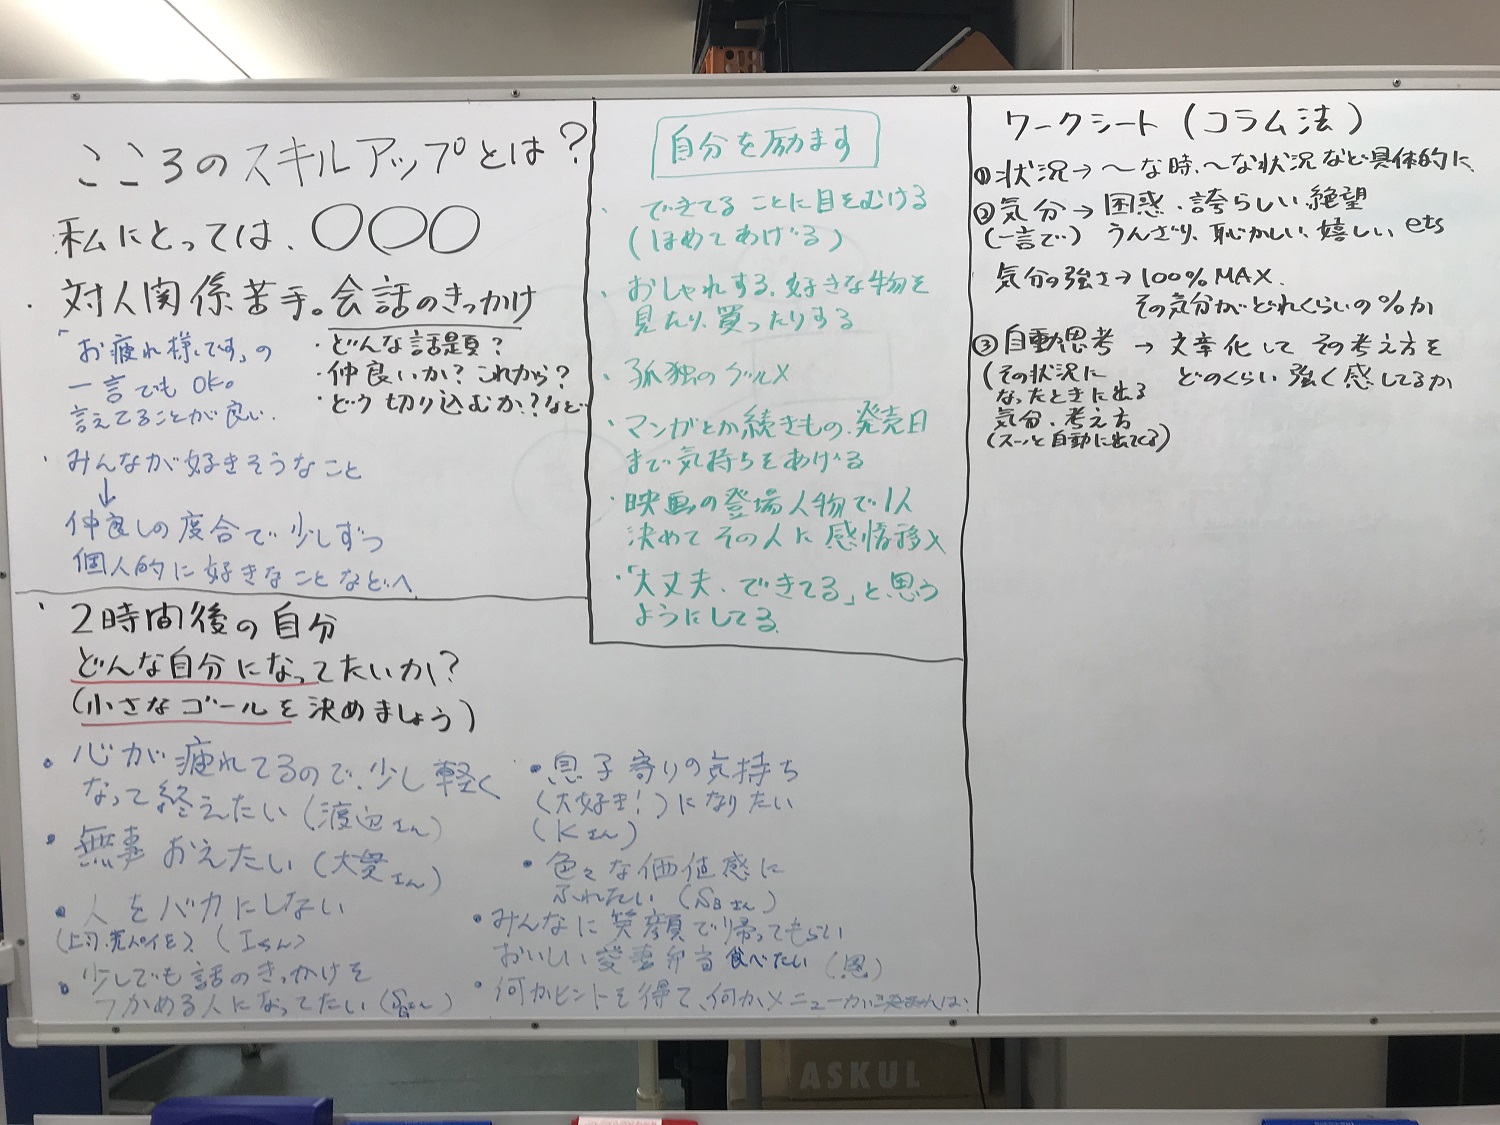 こころのスキルアップとは?
私にとっては、○○○
・対人関係苦手。会話のきっかけ
「お疲れ様です」の
一言でもOK。
言えてることが良い.
・どんな話題?
・仲良いか?これから?
・どう切り込むか?など
・みんなが好きそうなこと
↓
仲良しの度合で少しずつ
個人的に好きなことなどへ
・2時間後の自分
どんな自分になってたいか?
(小さなゴールを決めましょう)
・心が疲れてるので、少し軽く
なって終えたい(渡辺さん)
・無事おえたい(大愛さん)
・人をバカにしない
(上司、先パイを)(Iさん)
・少しでも話のきっかけを
つかめる人になってたい
・息子寄りの気持ち
(大好き!)になりたい
(Kさん)
・色々な価値感に
ふれたい(SBさん)
・みんなに笑顔で帰ってもらい
おいしい愛妻弁当食べたい(恩)
・何かヒントを得て、何か、メニューが
自分を励ます
・できてることに目をむける
(ほめてあげる)
・おしゃれする、好きな物を
見たり、買ったりする
・孤独のグルメ
・マンガとか続きもの、発売日
まで気持ちをあげる
・映画の登場人物で1人
決めてその人に感情移入
・「大丈夫、できてる」と思う
ようにしてる
ワークシート(コラム法)
①状況→〜な時、〜な状況など具体的に
②気分→困惑、誇らしい、絶望
(一言で)うんざり、恥かしい、嬉しい ets
気分の強さ→100%MAX.
その気分がどれくらいの%か
③自動思考→文章化してその考え方を
どのくらい強く感じてるか
(その状況に
なったときに出る
気分、考え方
(スーッと自動に出てくる)
ASKUL